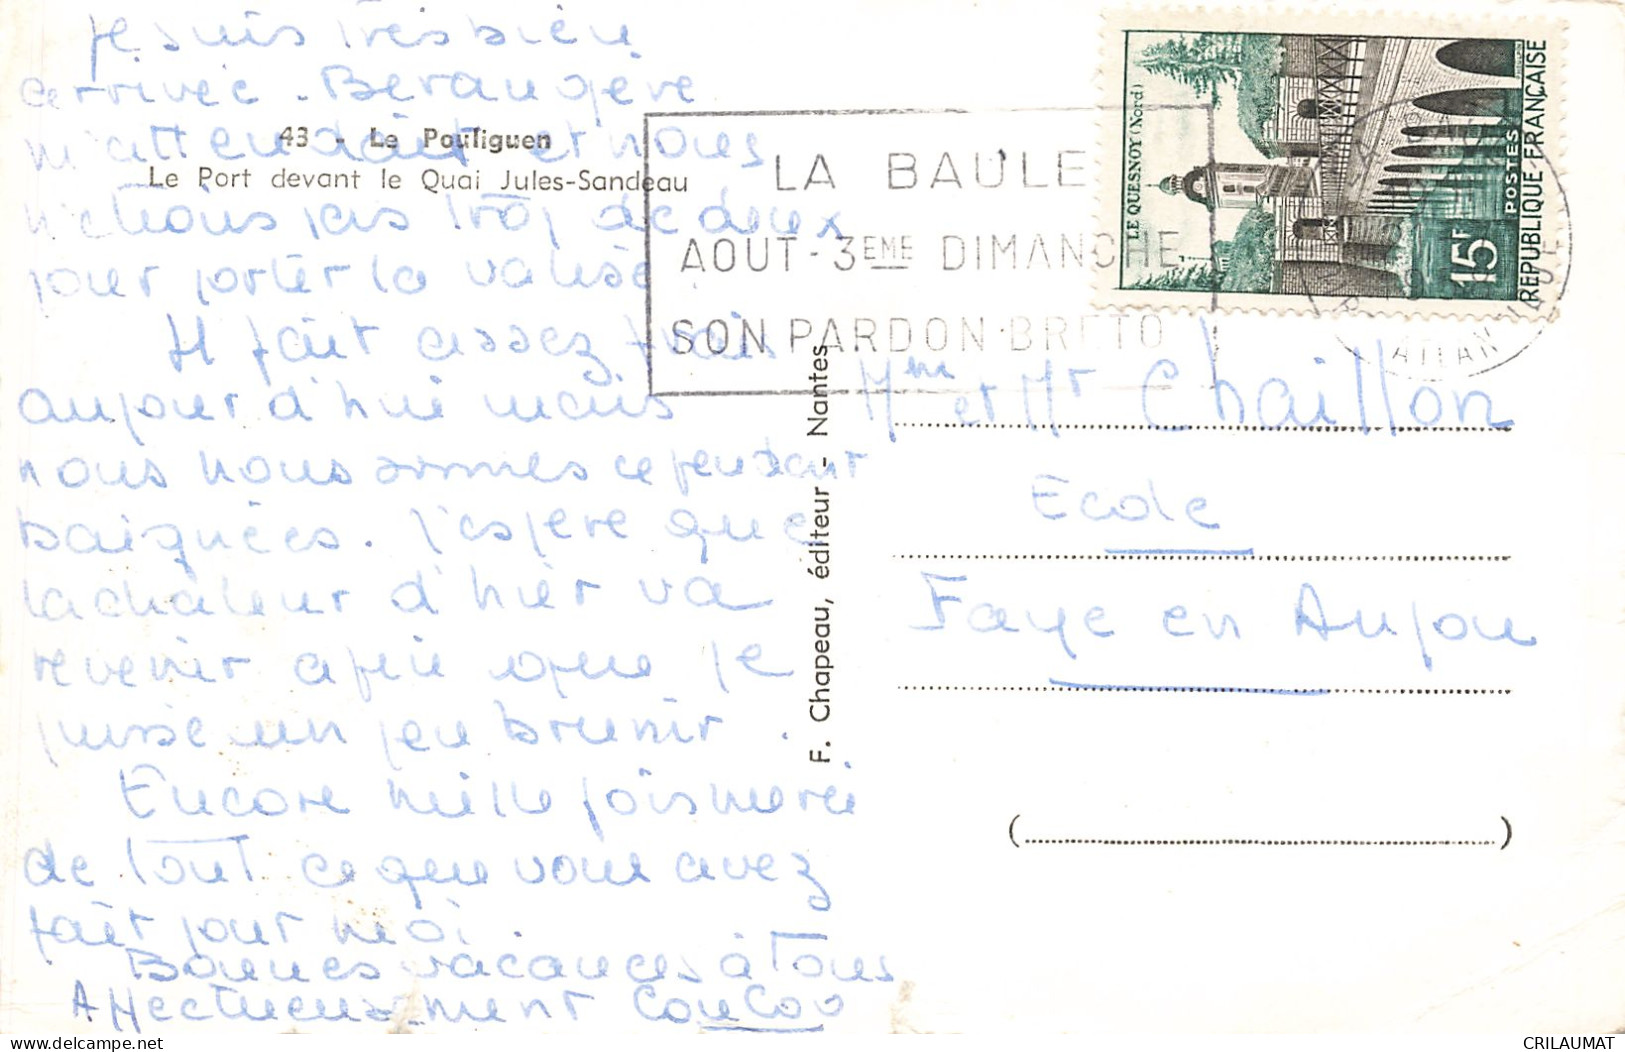 Je suis très bien
arrivée. Berangère
m'attendait et nous
n'étions pas trop de deux
pour porter la valise.
Il fait assez frais
aujourd'hui mais
nous nous sommes cependant
baignées. J'espère que
la chaleur d'hier va
revenir afin que je
puisse un peu brunir.
Encore mille fois merci
de tout ce que vous avez
fait pour moi.
Bonnes vacances à Tous
Affectueusement Coucou
43 - Le Pouliguen
Le Port devant le Quai Jules-Sandeau
F. Chapeau, éditeur - Nantes
LA BAULE
AOUT - 3EME DIMANCHE
SON PARDON BRETO
LE QUESNOY (Nord)
15F
POSTES
REPUBLIQUE FRANÇAISE
ATLAN
Mme et Mr Chaillon
Ecole
Faye en Anjou
(........)
CRILAUMAT